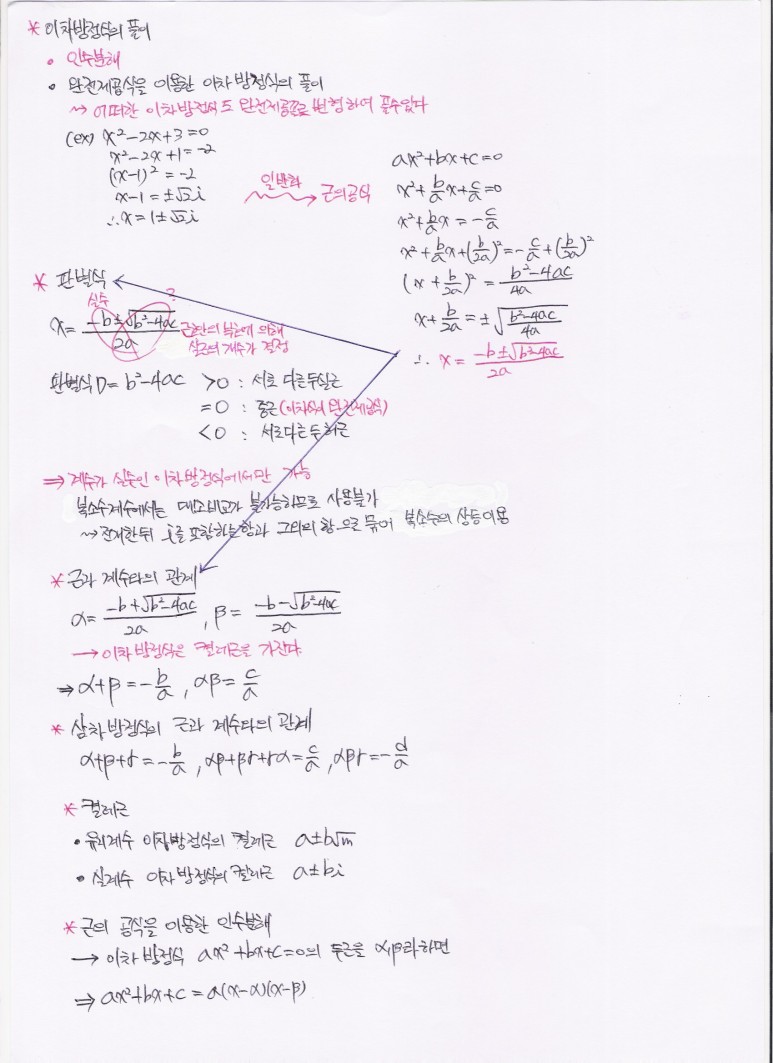 * 이차방정식의 풀이
• 인수분해
• 완전제곱식을 이용한 이차방정식의 풀이
↝ 어떠한 이차방정식도 완전제곱꼴로 변형하여 풀수있다
(ex) x²-2x+3=0
x²-2x+1=-2
(x-1)²=-2
x-1=±√2i
∴x=1±√2i
일반화
→ 근의공식
ax²+bx+c=0
x²+b/a x+c/a=0
x²+b/a x=-c/a
x²+b/a x+(b/2a)²=-c/a+(b/2a)²
(x+b/2a)²=b²-4ac/4a
x+b/2a=±√(b²-4ac/4a)
∴ x=-b±√(b²-4ac)/2a
* 판별식
실수 ?
x=-b±√(b²-4ac)/2a
근호안의 부호에 의해
실근의 개수가 결정
판별식 D=b²-4ac >0 : 서로 다른 두실근
=0 : 중근 (이차식이 완전제곱식)
<0 : 서로다른 두허근
⇒ 계수가 실수인 이차방정식에서만 가능
복소수계수에서는 대소비교가 불가능하므로 사용불가
↝ 전개한뒤 i를 포함하는항과 그외의 항으로 묶어 복소수의 상등이용
* 근과 계수와의 관계
α=-b+√(b²-4ac)/2a , β=-b-√(b²-4ac)/2a
→ 이차방정식은 켤레근을 가진다.
⇒ α+β=-b/a , αβ=c/a
* 삼차방정식의 근과 계수와의 관계
α+β+γ=-b/a , αβ+βγ+γα=c/a , αβγ=-d/a
* 켤레근
• 유리계수 이차방정식의 켤레근 a±b√m
• 실계수 이차방정식의 켤레근 a±bi
* 근의 공식을 이용한 인수분해
→ 이차방정식 ax²+bx+c=0의 두근을 α,β라하면
⇒ ax²+bx+c=a(x-α)(x-β)